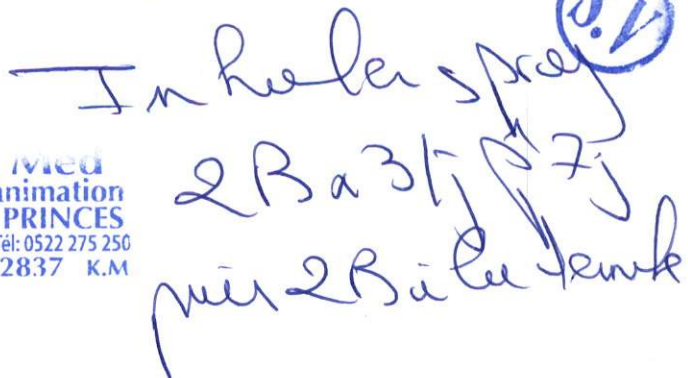 Inhaler spray
2B a 3/j p 7j
puis 2B à la demande
Med
animation
PRINCES
Tél: 0522 275 250
2837 K.M